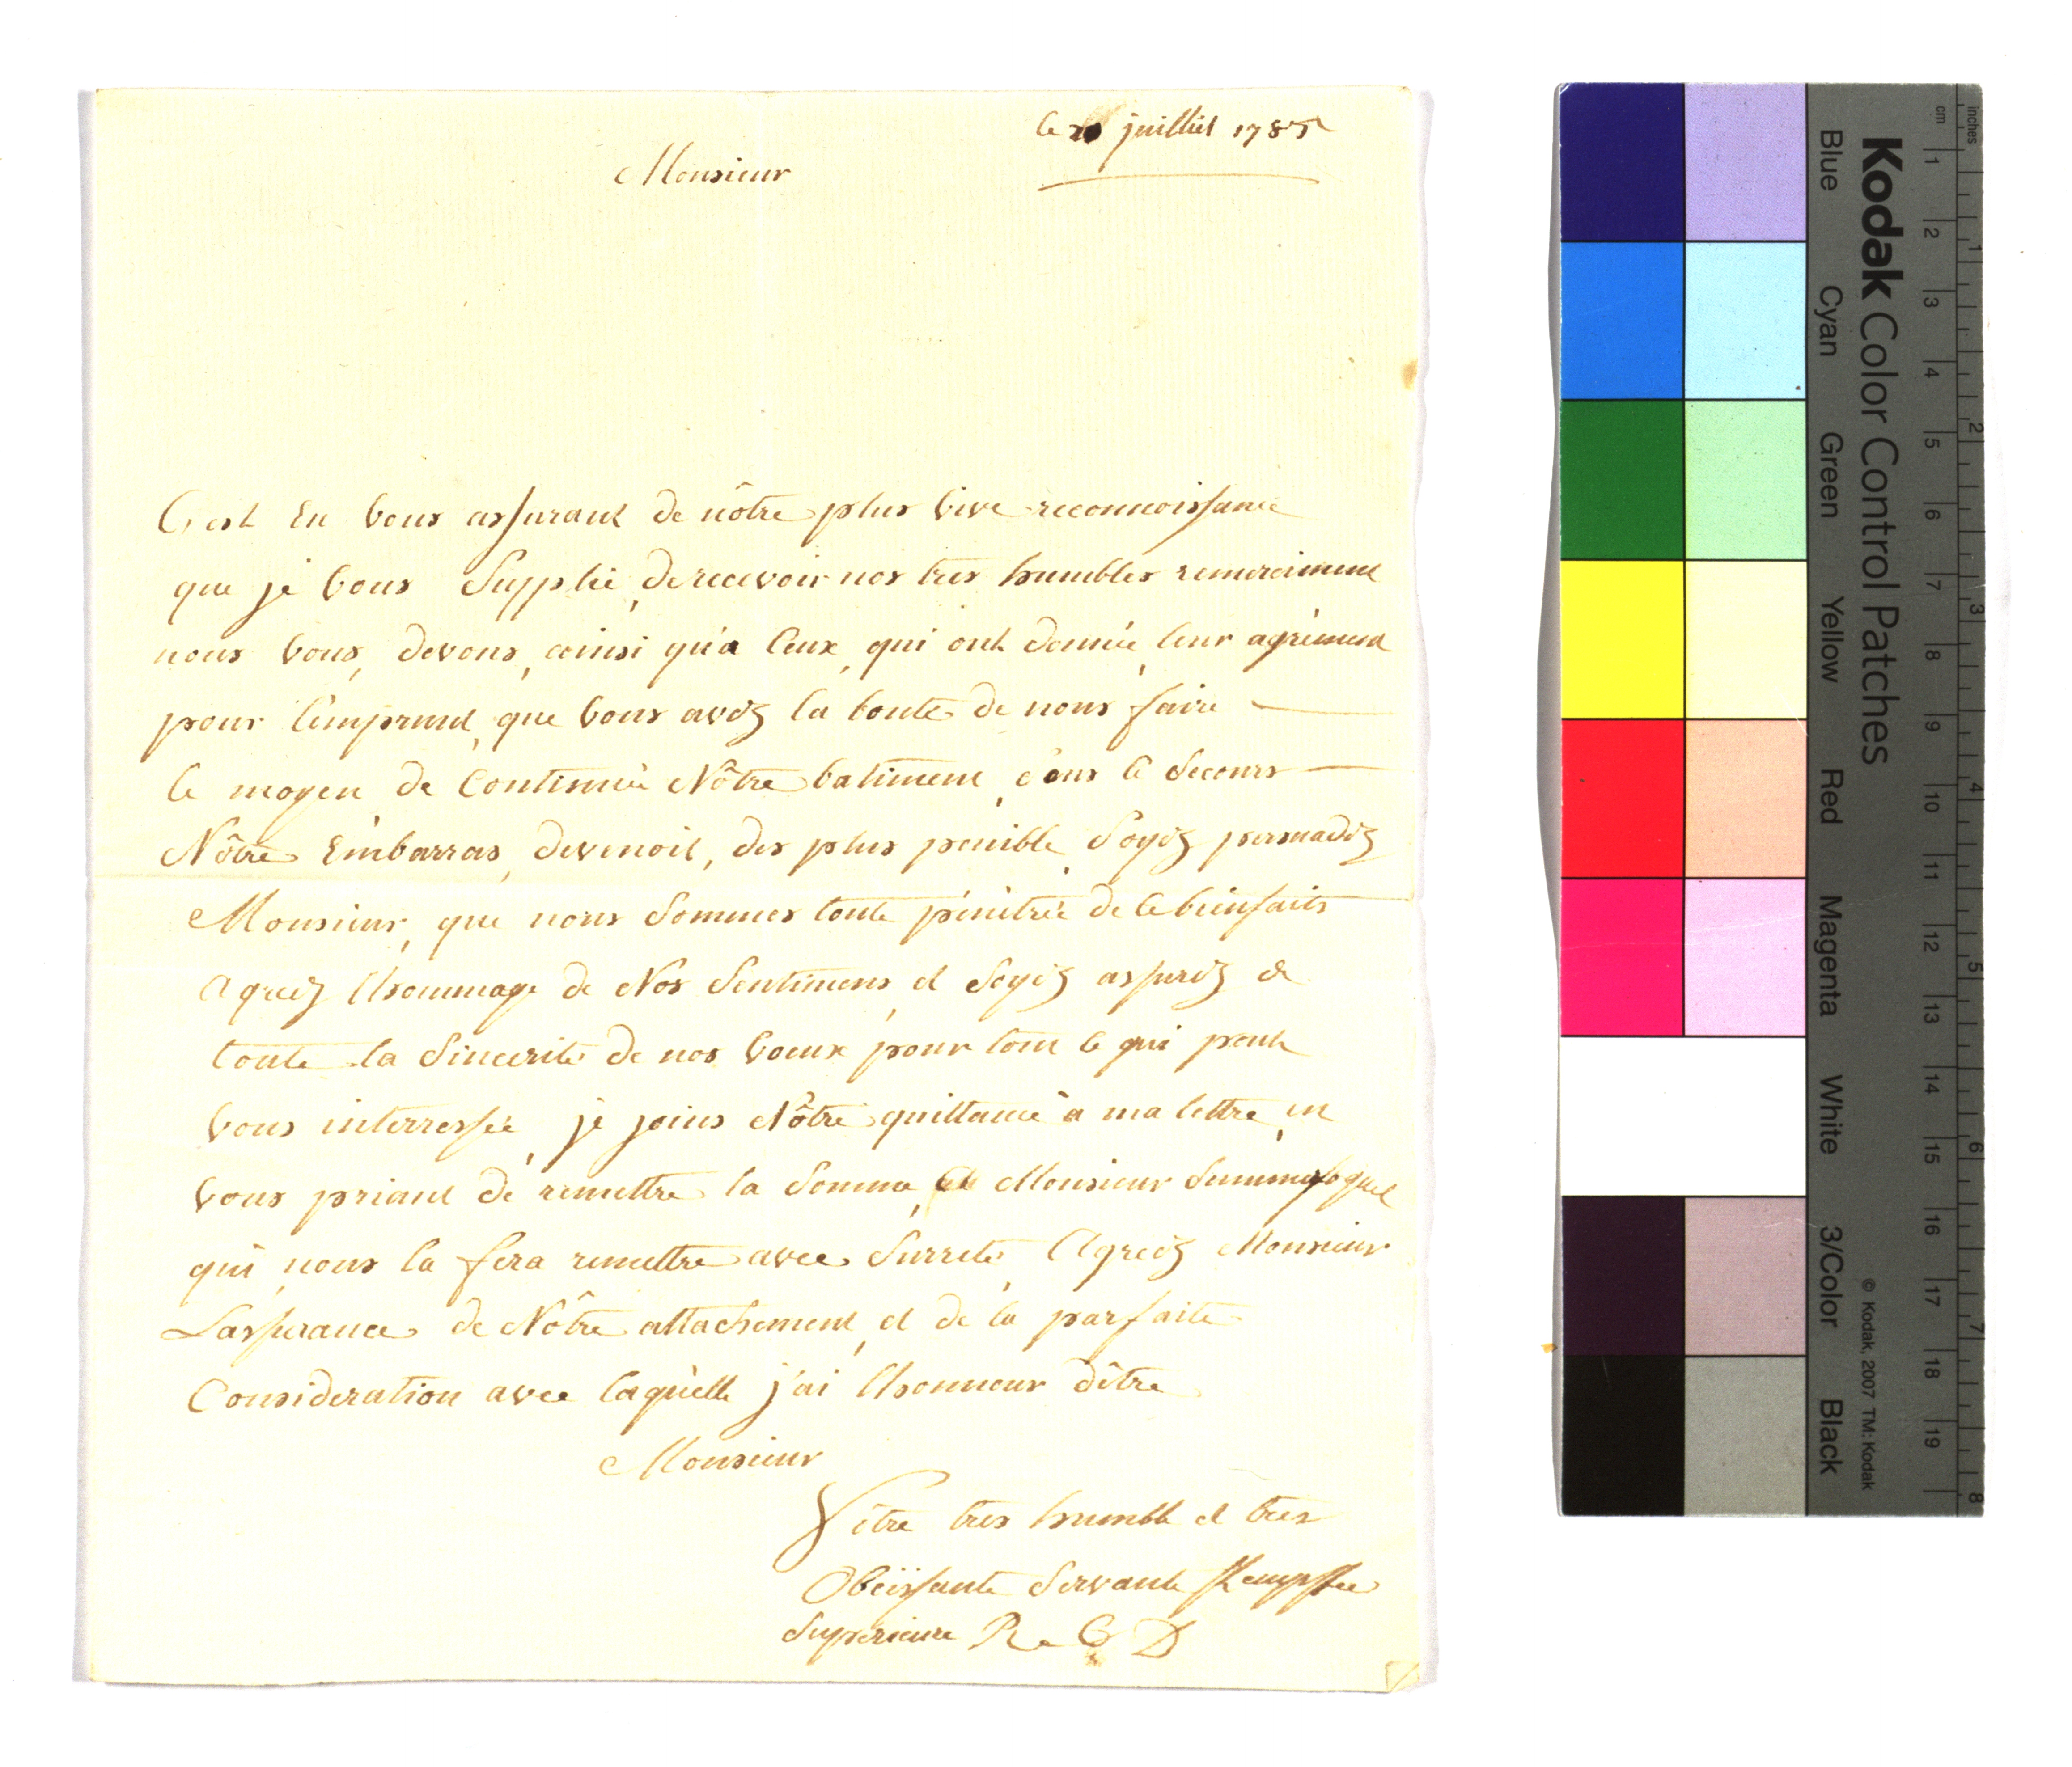 le juilliet 1785
Monsieur
C'est En vous assurant de nôtre plus vive reconnoissance
que je vous Supplie, de recevoir nos tres humbles remerciment
nous vous, devons, ainsi qu'a Ceux, qui ont donnée, leur agrément
pour l'emprunt, que vous avez la bonté de nous faire
le moyen de Continuer Nôtre batiment, sans le Secours
Nôtre Embarras, devenoit, des plus penible, Soyez persuadez
Monsieur, que nous Sommes toute pénétrée de ce bienfaits
agreez l'hommage de Nos Sentimens, et Soyez assurez de
toute la Sincerité de nos voeux pour tout ce qui peut
vous interressée, je joins Nôtre quittance a ma lettre, en
vous priant de remettre la Somme, a Monsieur
qui nous la fera remettre avec Surreté, Agreez Monsieur
L'assurance de Nôtre attachement, et de la parfaite
Consideration avec laquelle j'ai l'honneur d'être
Monsieur
Vôtre tres humble et tres
Obeïssante Servante Kempffer
Superieure R C D
Kodak Color Control Patches
Blue Cyan Green Yellow Red Magenta White 3/Color Black
© Kodak, 2007 TM: Kodak
cm 1 2 3 4 5 6 7 8 9 10 11 12 13 14 15 16 17 18 19
inches 1 2 3 4 5 6 7 8